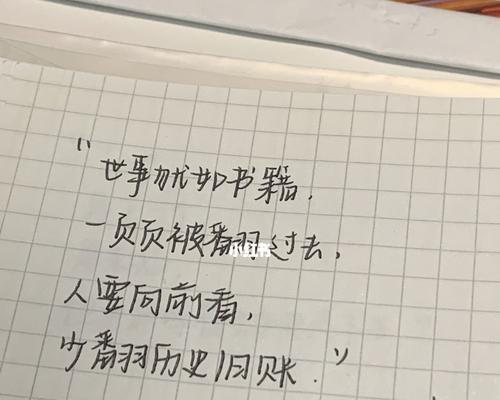 “世事犹如书籍,
一页页被翻过去,
小红书
人要向前看,
少翻历史旧账.”